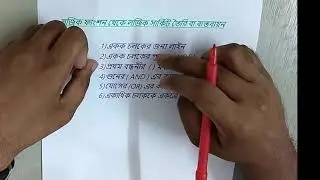 লজিক ফাংশন থেকে লজিক সার্কিট তৈরি বা বাস্তবায়ন
১)একক চলকের জন্য লাইন
২)একক চলকের
৩)প্রথম বন্ধনীর ( )
৪)গুনের ( AND ) এর
৫)যোগের (OR) এর
৬)একাধিক চলককে একত্রে